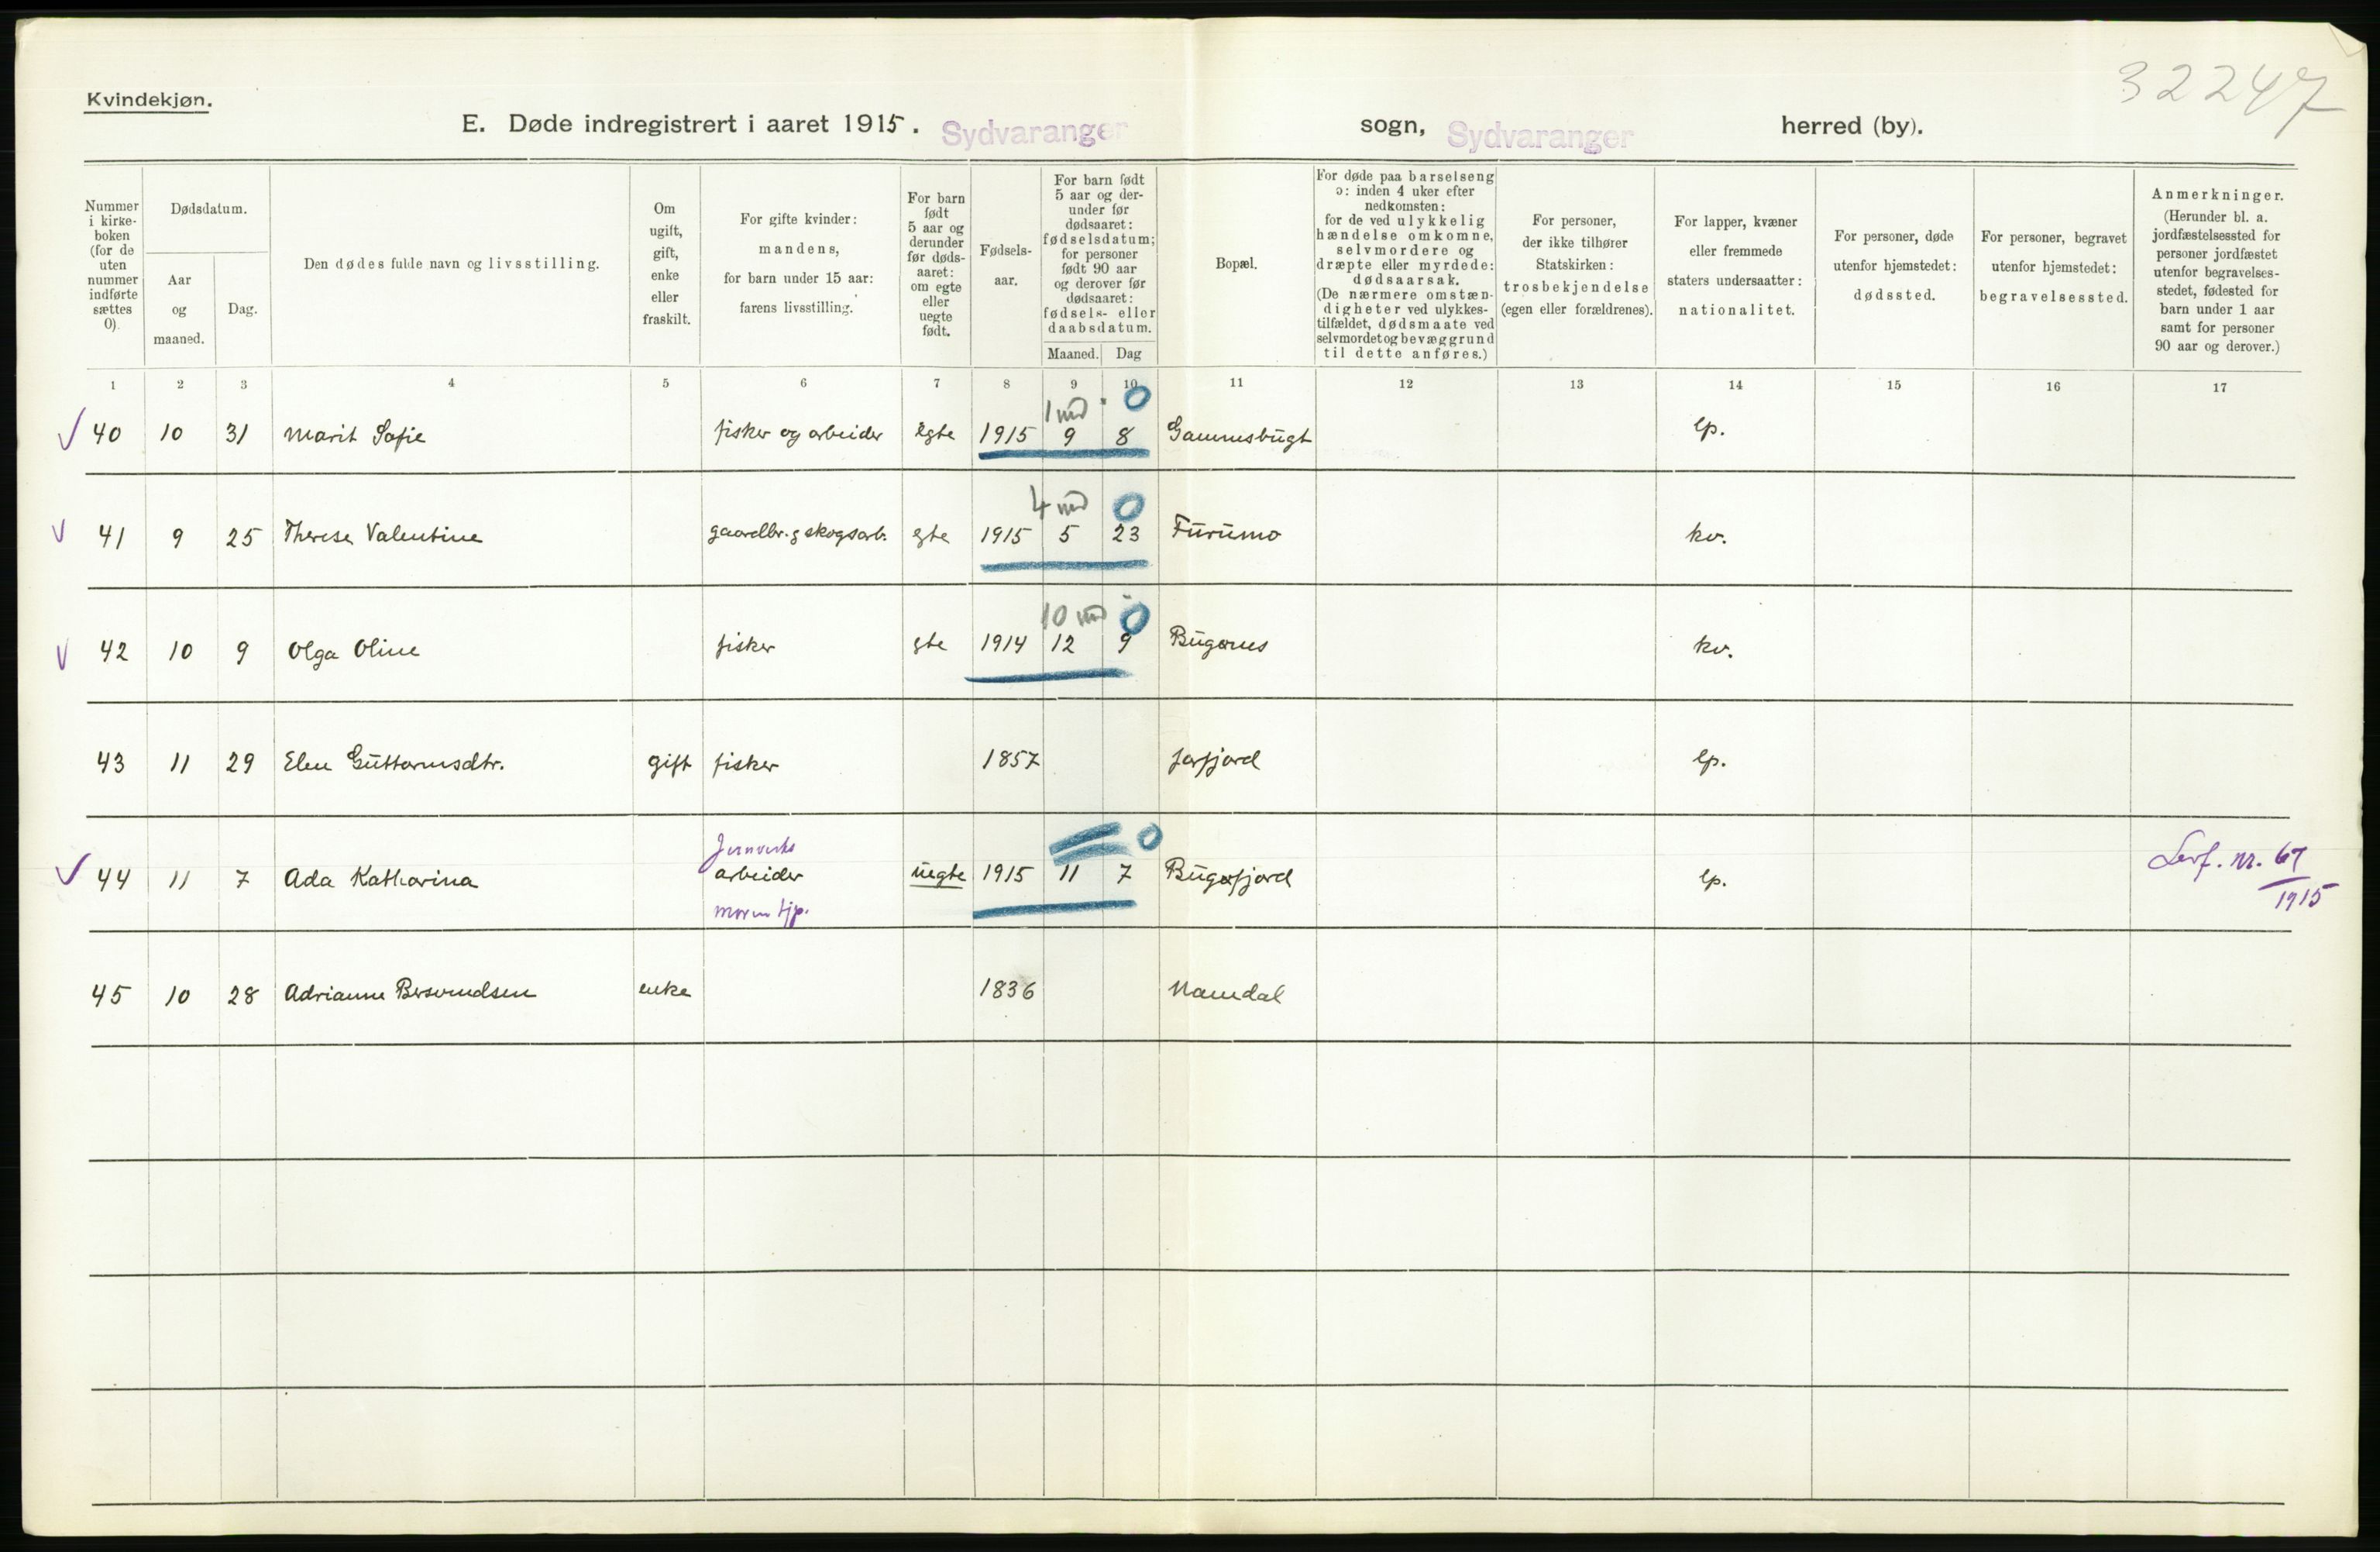 32247
Kvindekjøn.
E. Døde indregistrert i aaret 1915. Sydvaranger sogn, Sydvaranger herred (by).
Nummer
i kirke-
boken
(for de
uten
nummer
indførte
sættes
0).
Dødsdatum.
Aar
og
maaned.
Dag.
Den dødes fulde navn og livsstilling.
Om
ugift,
gift,
enke
eller
fraskilt.
For gifte kvinder:
mandens,
for barn under 15 aar:
farens livsstilling.
For barn
født
5 aar og
derunder
før døds-
aaret:
om egte
eller
uegte
født.
Fødsels-
aar.
For barn født
5 aar og der-
under før
dødsaaret:
fødselsdatum;
for personer
født 90 aar
og derover før
dødsaaret:
fødsels- eller
daabsdatum.
Maaned. Dag
Bopæl.
For døde paa barselseng
ɔ: inden 4 uker efter
nedkomsten:
for de ved ulykkelig
hændelse omkomne,
selvmordere og
dræpte eller myrdede:
dødsaarsak.
(De nærmere omstæn-
digheter ved ulykkes-
tilfældet, dødsmaate ved
selvmordet og bevæggrund
til dette anføres.)
For personer,
der ikke tilhører
Statskirken:
trosbekjendelse
(egen eller forældrenes).
For lapper, kvæner
eller fremmede
staters undersaatter:
nationalitet.
For personer, døde
utenfor hjemstedet:
dødssted.
For personer, begravet
utenfor hjemstedet:
begravelsessted.
Anmerkninger.
(Herunder bl. a.
jordfæstelsessted for
personer jordfæstet
utenfor begravelses-
stedet, fødested for
barn under 1 aar
samt for personer
90 aar og derover.)
1 2 3 4 5 6 7 8 9 10 11 12 13 14 15 16 17
1 md 0
40 10 31 Marit Sofie fisker og arbeider egte 1915 9 8 Gammsbugt lp.
4 md 0
41 9 25 Therese Valentine gaardbr. g skogsarb. egte 1915 5 23 Furumo kv.
10 md 0
42 10 9 Olga Oline fisker gte 1914 12 9 Bugønes kv.
43 11 29 Elen Guttormsdtr. gift fisker 1857 Jarfjord lp.
Jernverks 0
44 11 7 Ada Katharina arbeider uegte 1915 11 7 Bugøfjord lp. Levf. nr. 67
moren tjp. 1915
45 10 28 Adrianne Bersvendsen enke 1836 Namdal